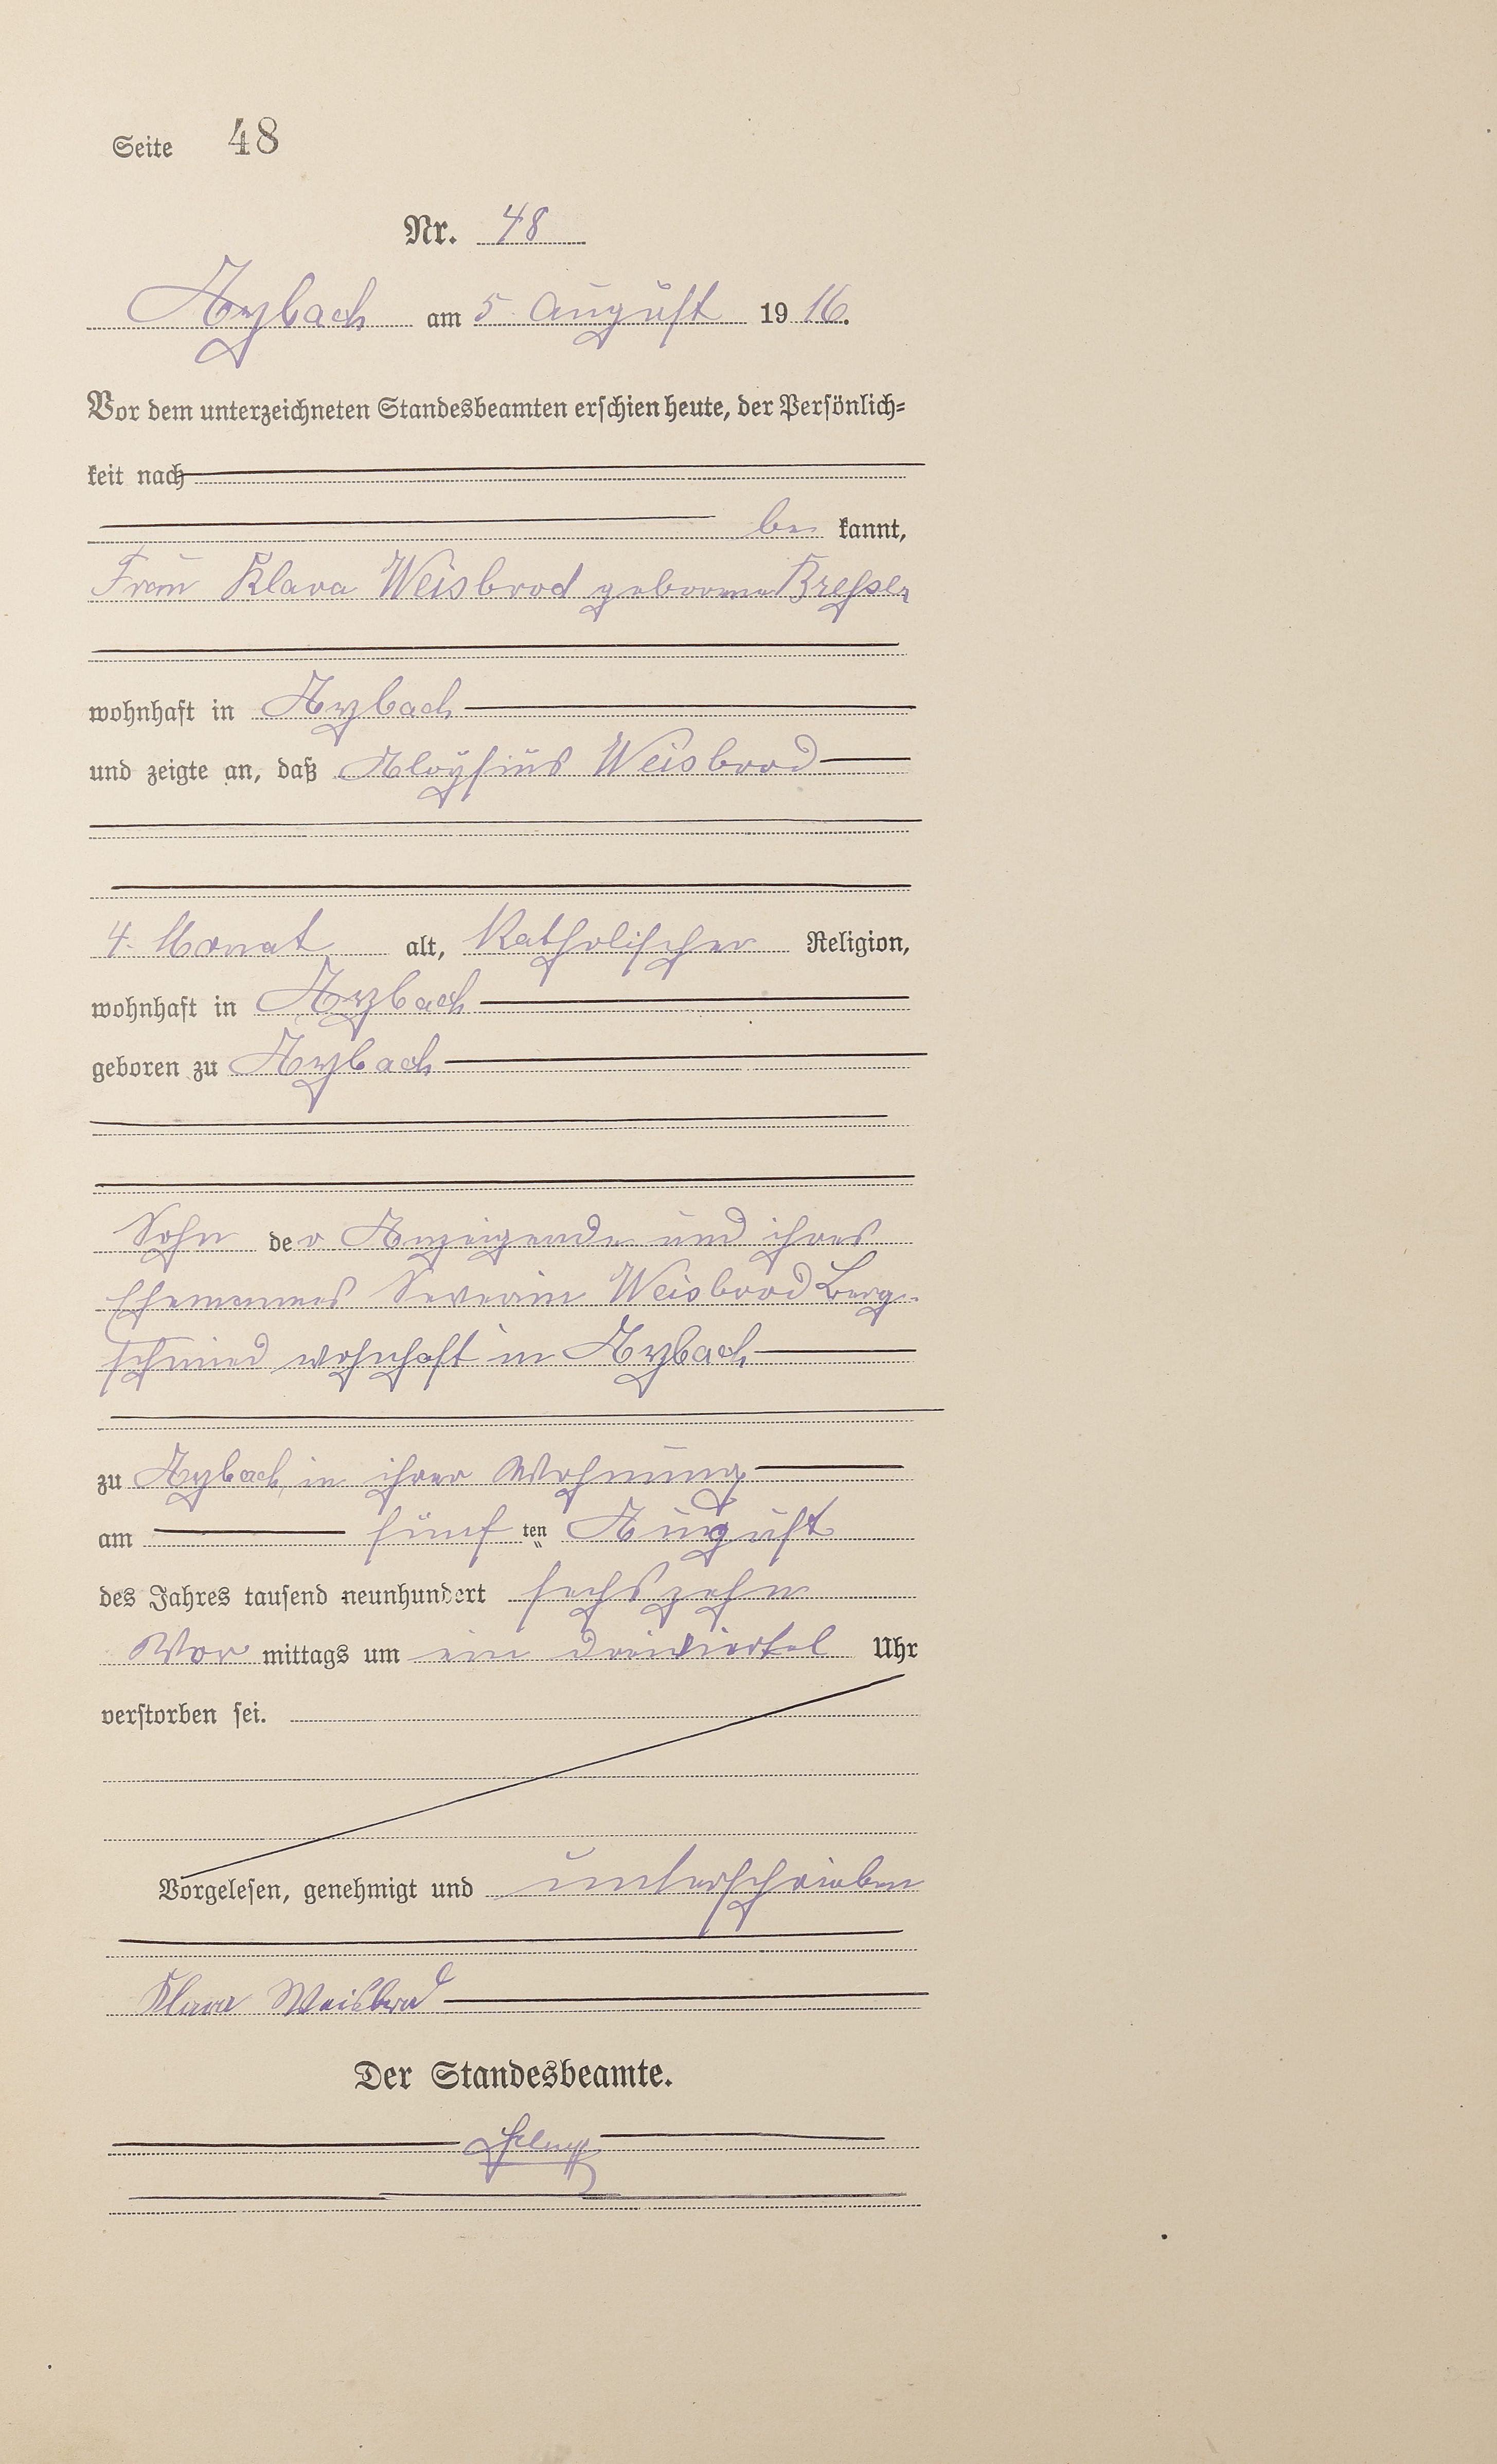 Seite 48
Nr. 48
Arzbach am 5. August 1916.
Vor dem unterzeichneten Standesbeamten erschien heute, der Persönlich-
keit nach
be kannt,
Frau Klara Weisbrod geborene
wohnhaft in Arzbach
und zeigte an, daß Aloysius Weisbrod
4. Monat alt, Katholischer Religion,
wohnhaft in Arzbach
geboren zu Arzbach
Sohn der Anzeigende und ihres
Ehemannes Severin Weisbrod Berg-
schmied wohnhaft in Arzbach
zu Arzbach, in ihrer Wohnung
am fünf ten August
des Jahres tausend neunhundert sechszehn
Vor mittags um ein dreiviertel Uhr
verstorben sei.
Vorgelesen, genehmigt und unterschrieben
Klara Weisbrod
Der Standesbeamte.